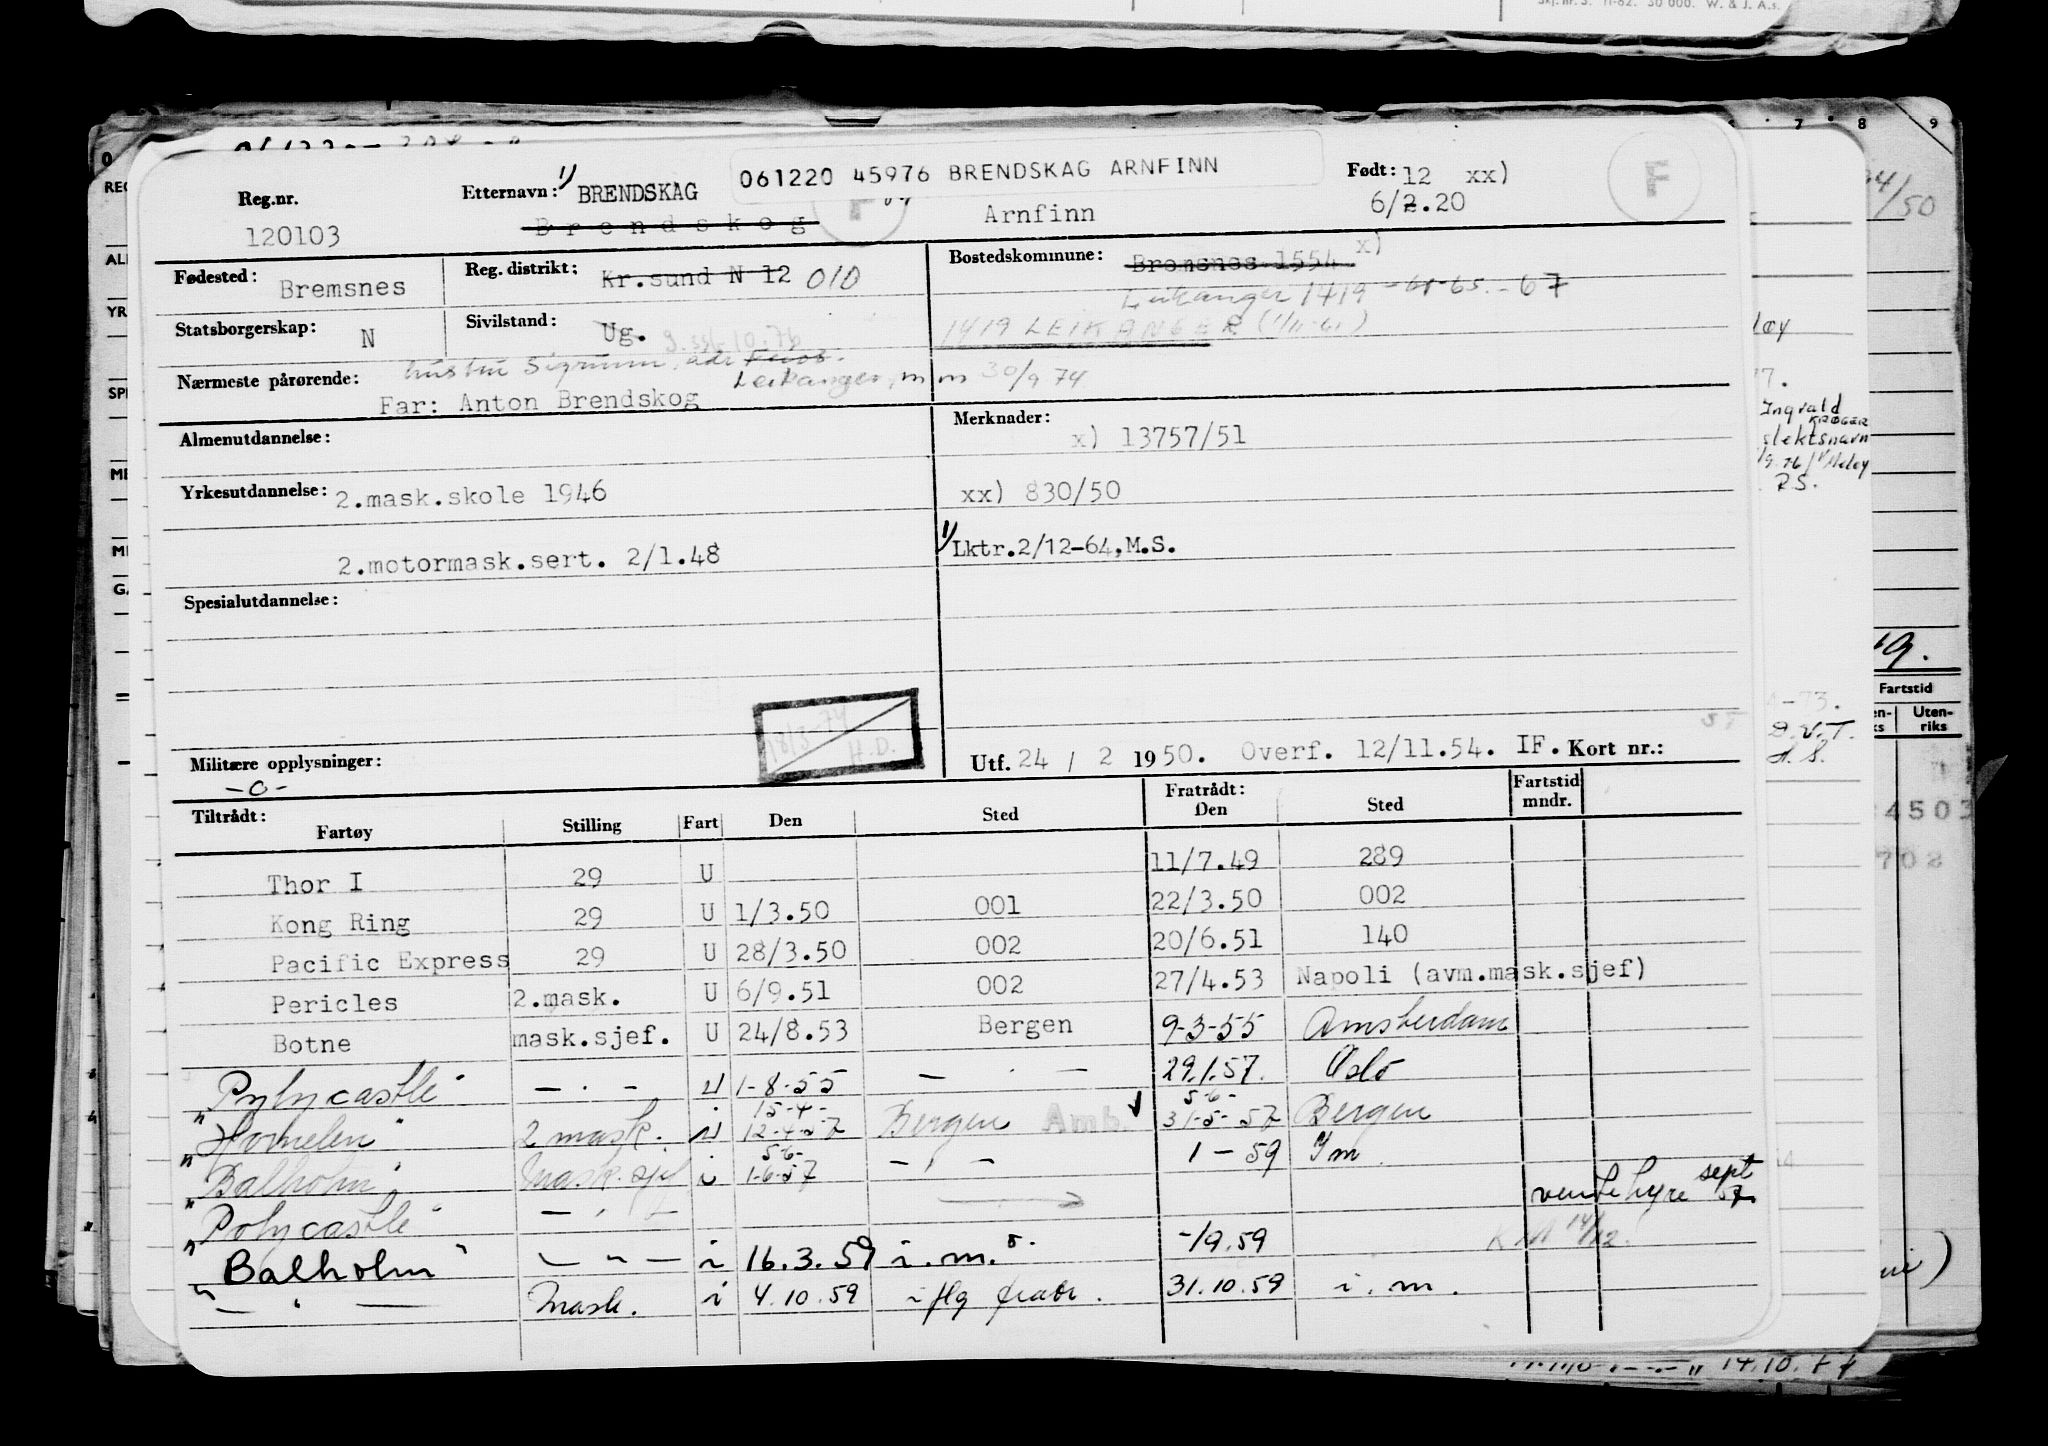 Skj. nr. 3. 11-62. 30 000. W. & J. A.s.
061220 45976 BRENDSKAG ARNFINN
Reg.nr. 120103
Etternavn: 1) BRENDSKAG
Brendskog
Arnfinn
Født: 12 xx)
6/2.20
F
Fødested: Bremsnes
Reg. distrikt: Kr.sund N 12 010
Bostedskommune: Bremsnes 1554 x)
Leikanger 1419 -61-65.-67
Statsborgerskap: N
Sivilstand: Ug.
1419 LEIKANGER (1/11-61)
hustru Sigrunn, adr
Nærmeste pårørende: Leikanger, m m 30/9 74
Far: Anton Brendskog
Almenutdannelse:
Merknader:
x) 13757/51
Yrkesutdannelse: 2.mask.skole 1946
xx) 830/50
2.motormask.sert. 2/1.48
1) Lktr.2/12-64, M.S.
Spesialutdannelse:
18/3-74
H.D.
Militære opplysninger:
-o-
Utf. 24 / 2 1950. Overf. 12/11.54. IF. Kort nr.:
Tiltrådt: Fratrådt: Fartstid
Fartøy Stilling Fart Den Sted Den Sted mndr.
Thor I 29 U 11/7.49 289
Kong Ring 29 U 1/3.50 001 22/3.50 002
Pacific Express 29 U 28/3.50 002 20/6.51 140
Pericles 2.mask. U 6/9.51 002 27/4.53 Napoli (avm.mask.sjef)
Botne mask.sjef. U 24/8.53 Bergen 9-3-55 Amsterdam
"Polycastle" — · — U 1-8-55 — · — 29.1.57. Oslo
15-4- 5-6-
"Hornelen" 2 mask. 12-4-57 Bergen Amb. 31-5-57 Bergen
5-6-
"Balholm" Mask.sjef i 1-6-57 — · — 1 - 59 Im
vente hyre sept
"Polycastle" — · —
"Balholm" — " — i 16.3.59 i.m. -/9.59
— · — Mask. i 4.10.59 i flg fratr. 31.10.59 i.m.
Ingvald
KRØGER
slektsnavn
R.S.
Fartstid
Uten-
riks
D.V.T.
4503
702